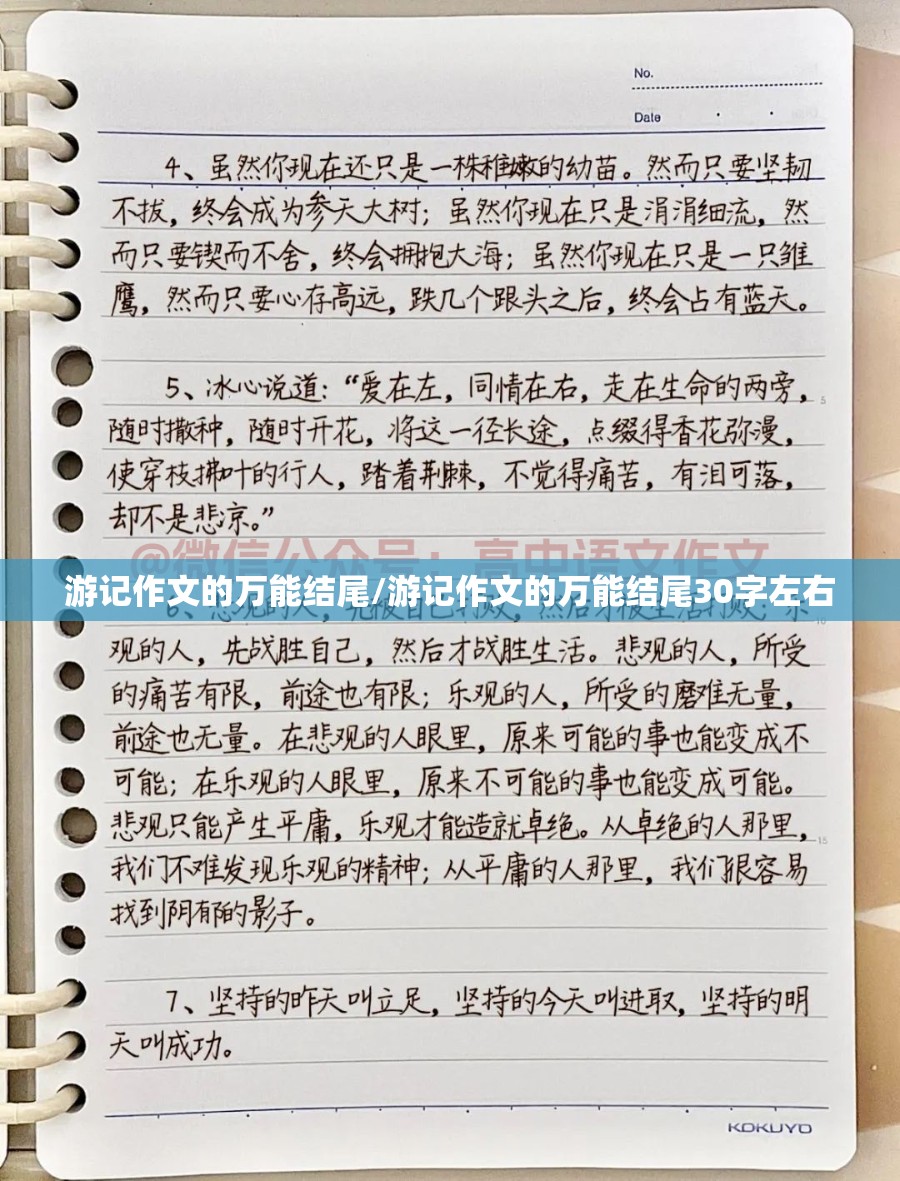 No.
Date
4、虽然你现在还只是一株稚嫩的幼苗。然而只要坚韧
不拔，终会成为参天大树；虽然你现在只是涓涓细流，然
而只要锲而不舍，终会拥抱大海；虽然你现在只是一只雏
鹰，然而只要心存高远，跌几个跟头之后，终会占有蓝天。
5、冰心说道：“爱在左，同情在右，走在生命的两旁，
5
随时撒种，随时开花，将这一径长途，点缀得香花弥漫，
使穿枝拂叶的行人，踏着荆棘，不觉得痛苦，有泪可落，
却不是悲凉。”
@微信公众号：高中语文作文
游记作文的万能结尾/游记作文的万能结尾30字左右
6、悲观的人，先被自己打败，然后才被生活打败；乐
10
观的人，先战胜自己，然后才战胜生活。悲观的人，所受
的痛苦有限，前途也有限；乐观的人，所受的磨难无量，
前途也无量。在悲观的人眼里，原来可能的事也能变成不
可能；在乐观的人眼里，原来不可能的事也能变成可能。
悲观只能产生平庸，乐观才能造就卓绝。从卓绝的人那里，
15
我们不难发现乐观的精神；从平庸的人那里，我们很容易
找到阴郁的影子。
7、坚持的昨天叫立足，坚持的今天叫进取，坚持的明
天叫成功。
KOKUYO